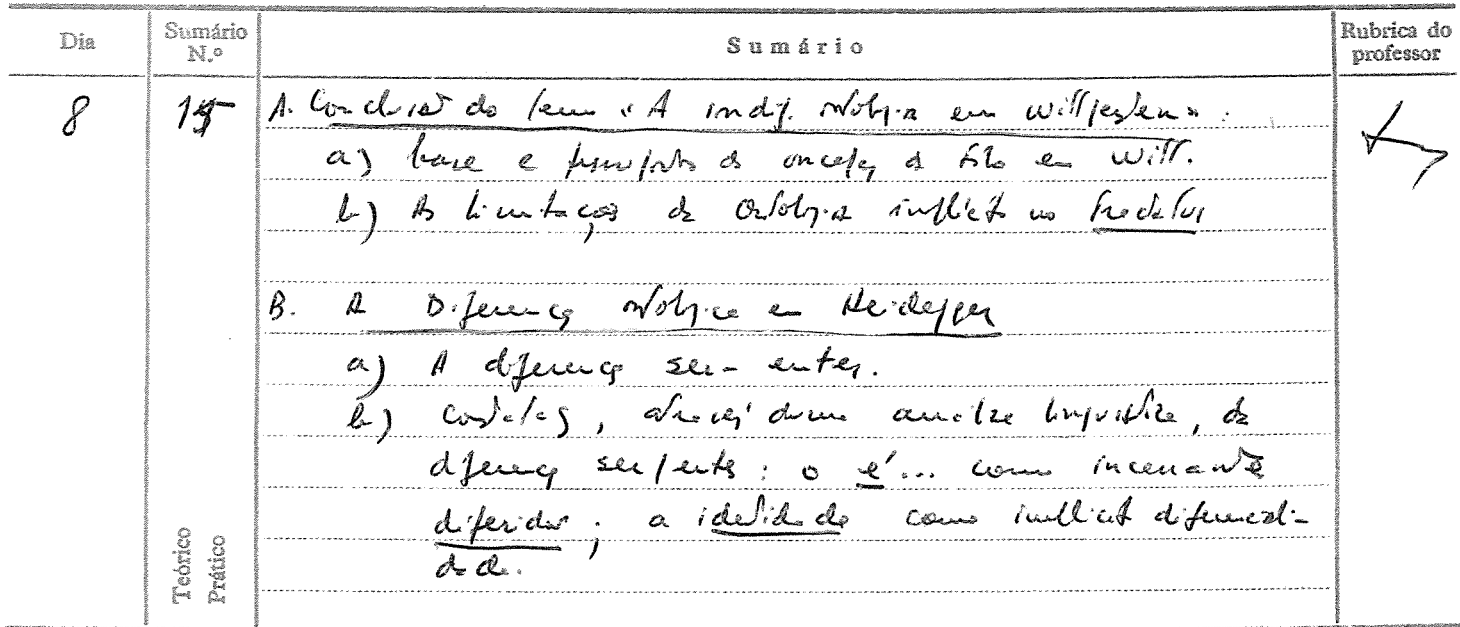 Dia
Sumário N.º
Sumário
Rubrica do professor
8
15
A. Conclusão do tema « A indif. ontológica em Wittgenstein» :
a) base e pressupostos da concepção de em Witt.
b) As limitações da Ontologia implícita no Tractatus
B. A Diferença ontológica em Heidegger
a) A diferença ser - entes.
b) , através duma análise linguística, da
diferença ser/ente : o é... como incessante
diferidor ; a identidade como implícita diferenciali-
dade.
Teórico
Prático